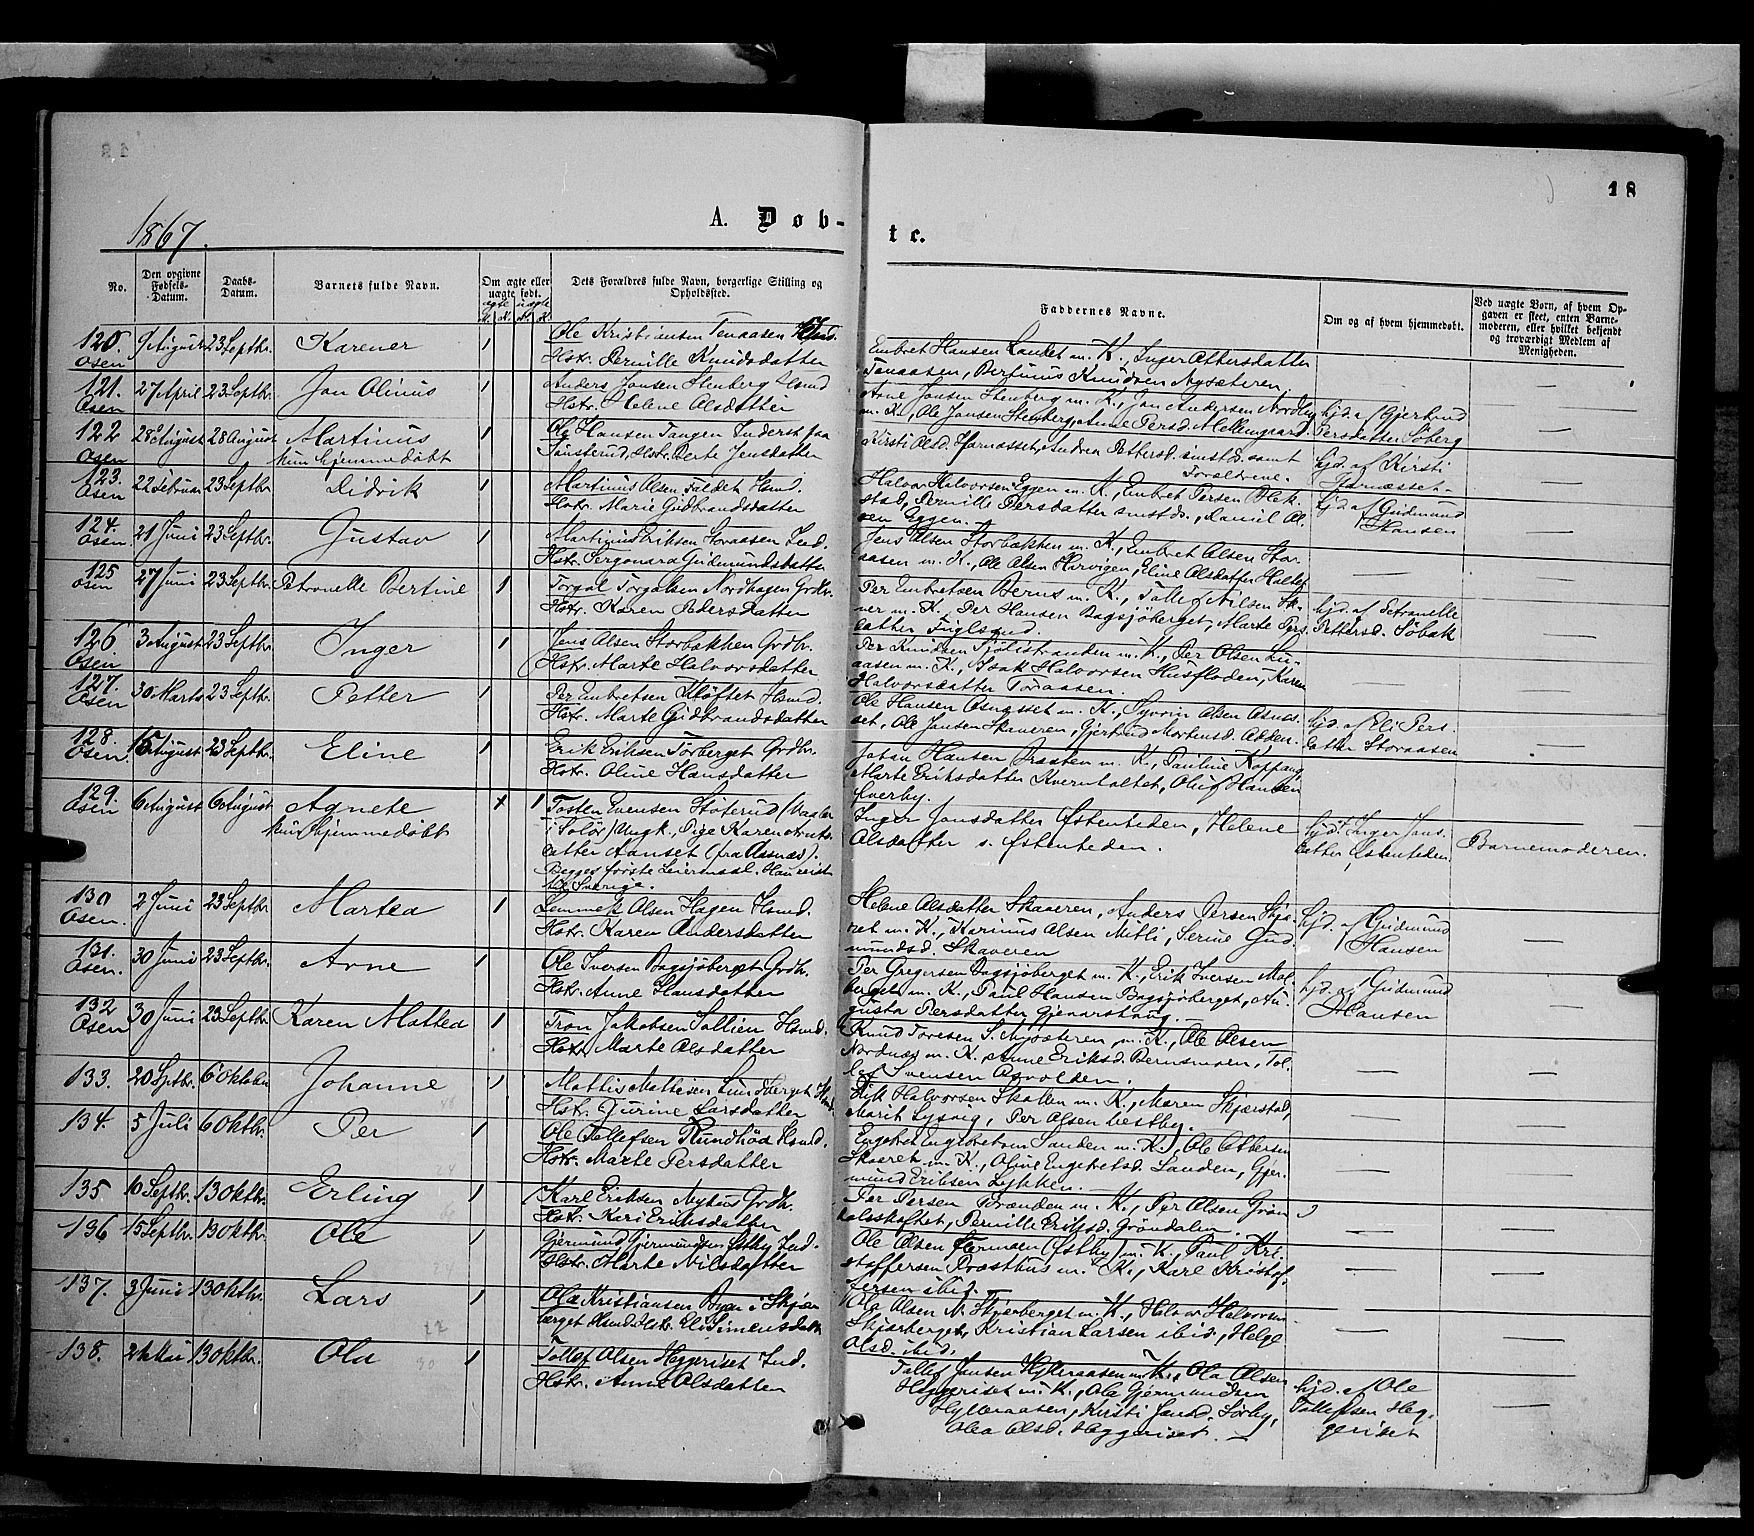 18
1867.
A. Døb-
te.
No.
Den opgivne Fødsels-Datum.
Daabs-Datum.
Barnets fulde Navn.
Om ægte eller uægte født.
ægte uægte
K. K.
Dets Forældres fulde Navn, borgerlige Stilling og Opholdssted.
Faddernes Navne.
Om og af hvem hjemmedøbt.
Ved uægte Børn, af hvem Opgaven er skeet, enten Barnemoderen, eller hvilket bekjendt og troværdigt Medlem af Menigheden.
120. Osen 9 August 23 Septbr. Karener 1
Ole Kristiansen Tenaasen
Hstr. Pernille Knudsdatter
Embret Hansen Landet m. K., Inger Ottersdatter
Tenaasen, Bertinus Knudsen Nysæteren.
121. Osen 27 April 23 Septbr. Jon Olinus 1
Anders Jonsen Stenberg Hsmd
Hstr. Helene Olsdatter
Arne Jonsen Stenberg m. K., Jon Andersen Nordby
m. K., Ole Jonsen Stenberg, Anne Persd. Mellemgaard.
hjd. af Gjertrud
Persdatter Søberg
122 Osen 28 August 28 August Martinus 1
kun hjemmedøbt
Ole Hansen Tangen Inderst paa
Hstr. Berte Jensdatter
Kirsti Olsd. Harnæsset, Andrea Pettersd. smstds. samt
Forældrene.
hjd. af Kirsti
Harnæsset
123. Osen 22 Februar 23 Septbr Didrik 1
Martinus Olsen Faldet Hsmd.
Hstr. Marie Gudbrandsdatter
Halvor Halvorsen Eggen m. K., Embret Persen Blek-
stad, Pernille Persdatter smstds., Daniel Ol-
sen Eggen.
hjd. af Gudmund
Hansen
124. Osen 21 Juni 23 Septbr. Gustav 1
Martinus Eriksen Storaasen Ind.
Hstr. Gudmundsdatter
Jens Olsen Storbækken m. K., Embret Olsen Stor-
aasen m. K., Ole Olsen Harvigen, Eline Olsdatter
125 Osen 27 Juni 23 Septbr. Petronelle Bertine 1
Torgal Torgalsen Nordhagen Grdbr.
Hstr. Karen Pedersdatter
Per Embretsen Berns m. K., Tollef Nilsen Sk-
ver m. K., Per Hansen Bagsjøberget, Marte Pers-
datter Fuglsund.
hjd. af Petronelle
Pettersd. Søbak
126. Osen 3 August 23 Septbr. Inger 1
Jens Olsen Storbækken Grdbr.
Hstr. Marte Halvorsdatter
Per Knudsen Sjølistranden m. K., Per Olsen Lu-
aasen m. K., Isak Halvorsen Husfloden, Karen
Halvorsdatter Toraasen.
127. Osen 30 Marts 23 Septbr. Petter 1
Per Embretsen Kløftet Hsmd.
Hstr. Marte Gudbrandsdatter
Ole Hansen Asnæsset m. K., Syvrin Olsen Asnæs-
set, Ole Jonsen Skaveren, Gjertrud Mortensd.
hjd. af Eli Pers-
datter Storaasen
128. Osen. 15 August 23 Septbr. Eline 1
Erik Eriksen Torberget Grdbr.
Hstr. Oline Hansdatter
Johan Hansen Braaten m. K., Pauline Koppang,
Marte Eriksdatter Kverntoltet, Oluf Hansen
Øverby.
129. Osen 6 August 6 August Agnete 1
kun hjemmedøbt
Tosten Evensen Støterud (Vaaler
i Solør) Ungk., Pige Karen
datter Aanset (fra Aasnæs).
Begges første Leiermaal. Han reist
til Sverige.
Inger Jonsdatter Østenheden, Helene
Olsdatter s. Østenheden.
hjd. Inger Jons-
datter Østenheden
Barnemoderen.
130 Osen. 2 Juni 23 Septbr Martea 1
Lemmek Olsen Hagen Hsmd.
Hstr. Karen Andersdatter
Helene Olsdatter Skaveren, Anders Persen Skjæ-
ret m. K., Karinus Olsen Mitli, Serine Gud-
mundsd. Skaveren
hjd. af Gudmund
Hansen
131. Osen. 30 Juni 23 Septbr. Arne 1
Ole Iversen Bagsjøberget Grdbr.
Hstr. Anne Hansdatter
Per Gregersen Bagsjøberget m. K., Erik Iversen Mol-
berget m. K., Paul Hansen Bagsjøberget, Au-
gusta Persdatter Gjenarshaug.
hjd. af Gudmund
Hansen
132 Osen 30 Juni 23 Septbr. Karen Mathea 1
Tron Jakobsen Sollien Hsmd.
Hstr. Marte Olsdatter
Knud Toresen S. Nysæteren m. K., Ole Olsen
Nordnæs m. K., Anne Eriksd. Bernsmoen, Tol-
lef Svensen Osvolden.
133. 20 Septbr. 6 Oktober Johanne 1
Mathis Mathisen Lundberget Hsmd.
Hstr. Jurine Larsdatter
Erik Halvorsen Skatten m. K., Maren Skjærstad,
Marit Lysvig, Per Olsen Vestby.
134. 5 Juli 6 Oktbr. Per 1
Ole Tollefsen Rundhøa Hsmd.
Hstr. Marte Persdatter
Engebret Engebretsen Sanden m. K., Ole Ottersen
Skaaret m. K., Oline Engebretsd. Sanden, Gjer-
mund Eriksen Lykken.
24
135. 10 Septbr. 13 Oktbr. Erling 1
Karl Eriksen Nyhus Grdbr.
Hstr. Kari Eriksdatter
Per Persen Brænden m. K., Per Olsen Grøn-
Pernille Eriksd. Grøndalen.
136 15 Septbr. 13 Oktbr. Ole 1
Gjermund Gjermundsen Østby Ind.
Hstr. Marte Nilsdatter
Ole Olsen Termoen (Østby) m. K., Paul Kri-
stoffersen Præsthus m. K., Karl Kristof-
fersen ibid.
137. 3 Juni 13 Oktbr. Lars 1
Ola Kristiansen Byen i Skjær-
berget Hsmd. Hstr. Eli Simensdatter
Ola Olsen N. Skjærberget m. K., Halvor Halvorsen
Skjærberget, Kristian Larsen ibid., Helge
Olsd. ibid.
22
138. 24 Mai 13 Oktbr. Ola 1
30
Tollef Olsen Heggeriset Ind.
Hstr. Anne Olsdatter
Tollef Jonsen Hylleraasen m. K., Ola Olsen
Heggeriset m. K., Ole Gjermundsen
Hylleraasen, Kirsti Jonsd. Sørby,
Olea Olsd. Heggeriset.
hjd. af Ole
Tollefsen Heg-
geriset